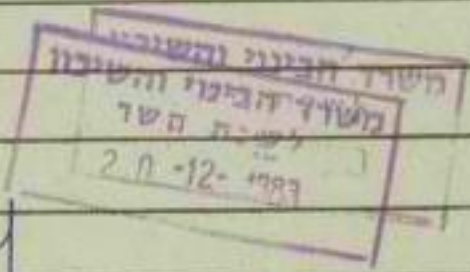 משרד הבינוי והשיכון
משרד הבינוי והשיכון
לשכת השר
20 -12- 1983